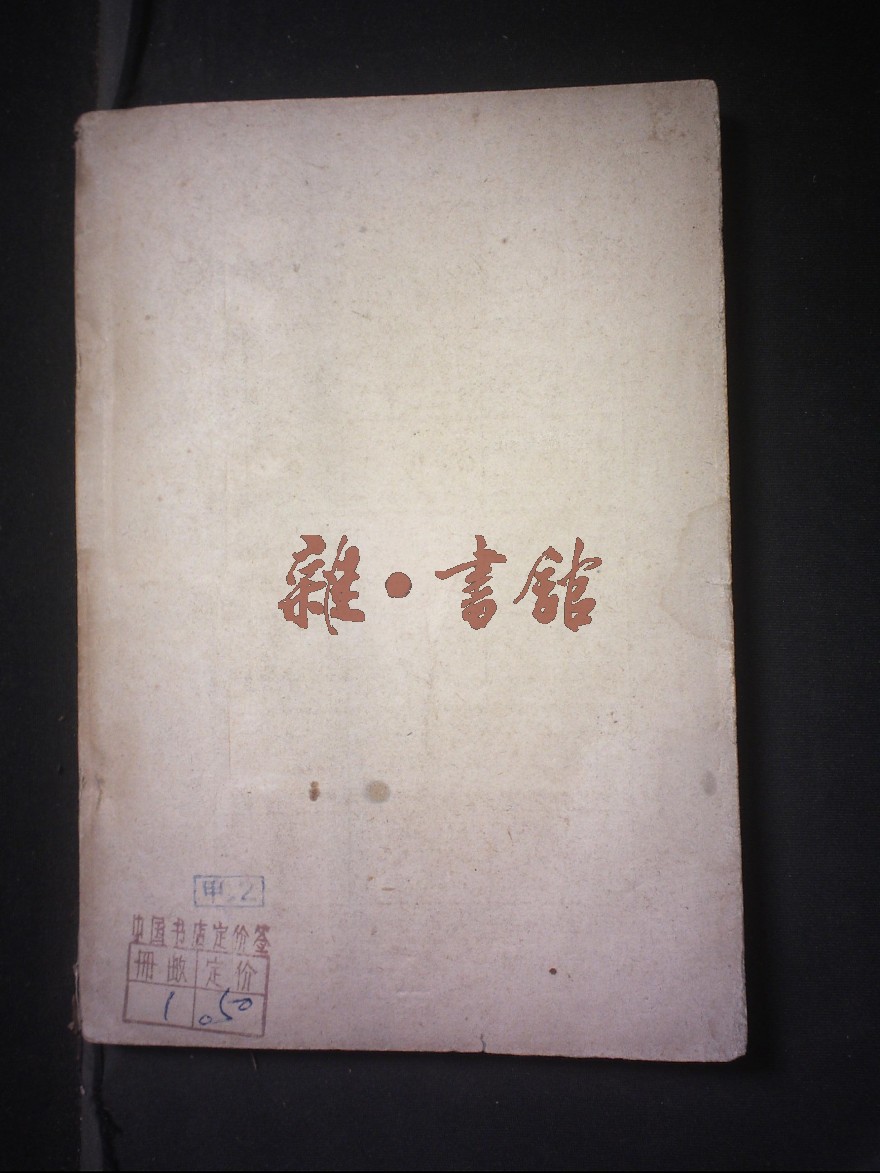 雜·書館
甲.2
中国书店定价签
册数 定价
1 0.50